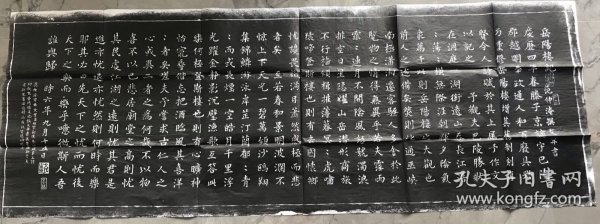 岳陽樓記
慶曆四年春滕子京謫守巴陵
郡越明年政通人和百廢具興
乃重修岳陽樓增其舊制刻唐
賢今人詩賦於其上屬予作文
以記之 予觀夫巴陵勝狀
在洞庭一湖銜遠山吞長江浩
：蕩：橫無際涯朝暉夕陰氣
象萬千此則岳陽樓之大觀也
前人之述備矣然則北通巫峽
南極瀟湘遷客騷人多會於此
覽物之情得無異乎若夫霪雨
霏：連月不開陰風怒號濁浪
排空日星隱耀山岳潛形商旅
不行檣傾楫摧薄暮冥：虎嘯
猿啼登斯樓也則有去國懷鄉
憂讒畏譏滿目蕭然感極而悲
者矣 至若春和景明波瀾不
驚上下天光一碧萬頃沙鷗翔
集錦鱗游泳岸芷汀蘭郁：青
：而或長煙一空皓月千里浮
光躍金靜影沉璧漁歌互答此
樂何極登斯樓也則有心曠神
怡寵辱皆忘把酒臨風其喜洋
：者矣嗟夫予嘗求古仁人之
心或異二者之為何哉不以物
喜不以己悲居廟堂之高則憂
其民處江湖之遠則憂其君是
進亦憂退亦憂然則何時而樂
耶其必曰先天下之憂而憂後
天下之樂而樂乎噫微斯人吾
誰與歸 時六年九月十五日
孔夫子旧书网